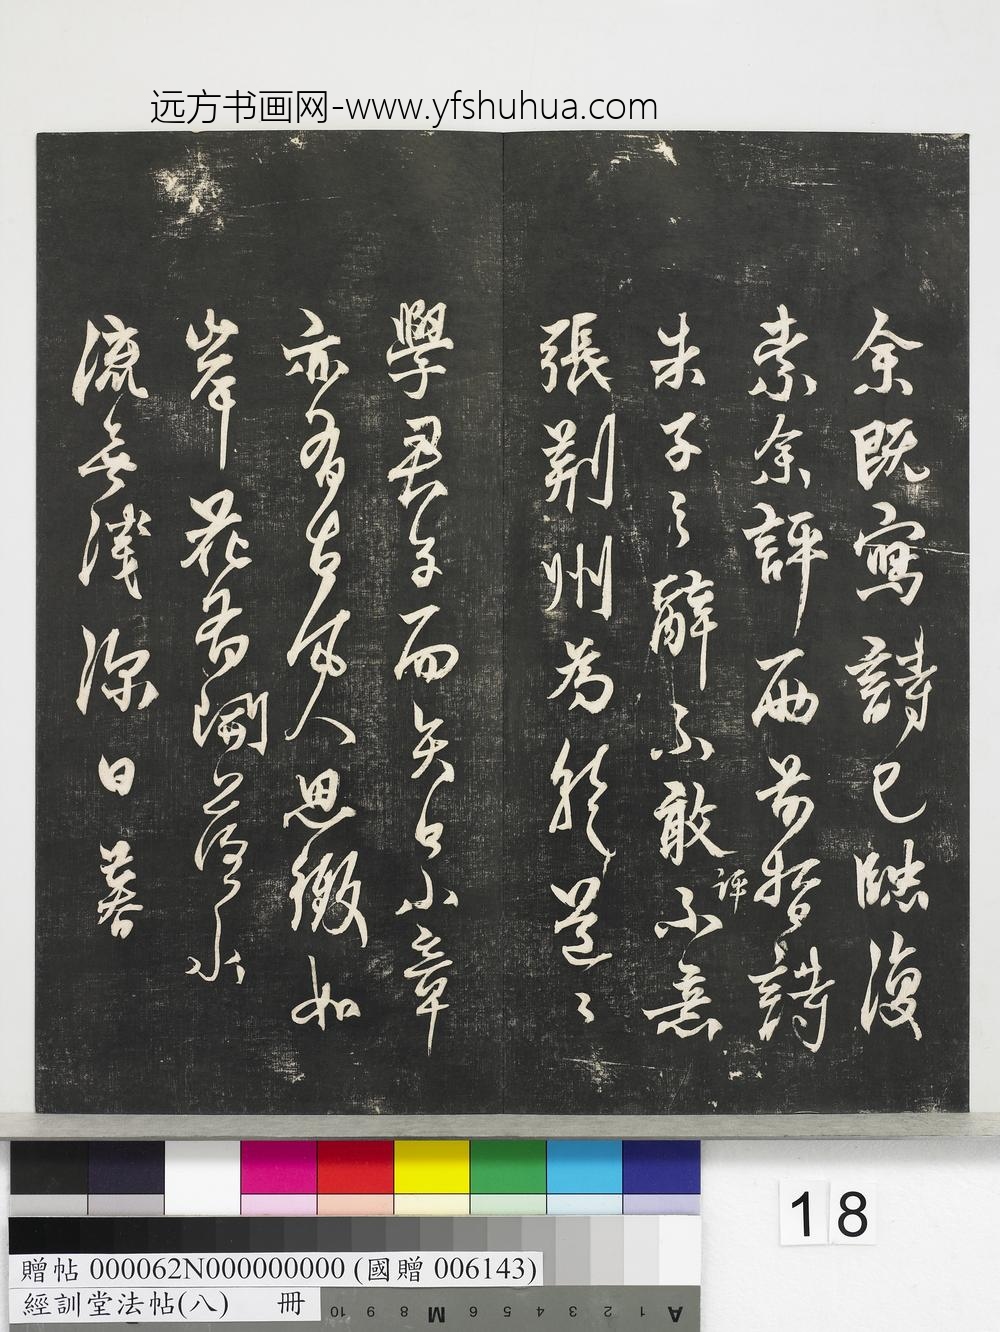 远方书画网-www.yfshuhua.com
余既寫詩已滕復
索余評西前哲詩
評
朱子之辭不敢不意
張荆州為於道〻
學君子而矣以小章
亦有古風人思緻如
岸花有開落水
流無淺深日暮
18
贈帖 000062N000000000 (國贈 006143)
經訓堂法帖(八) 冊
10 9 8 M 6 5 4 3 2 1 A